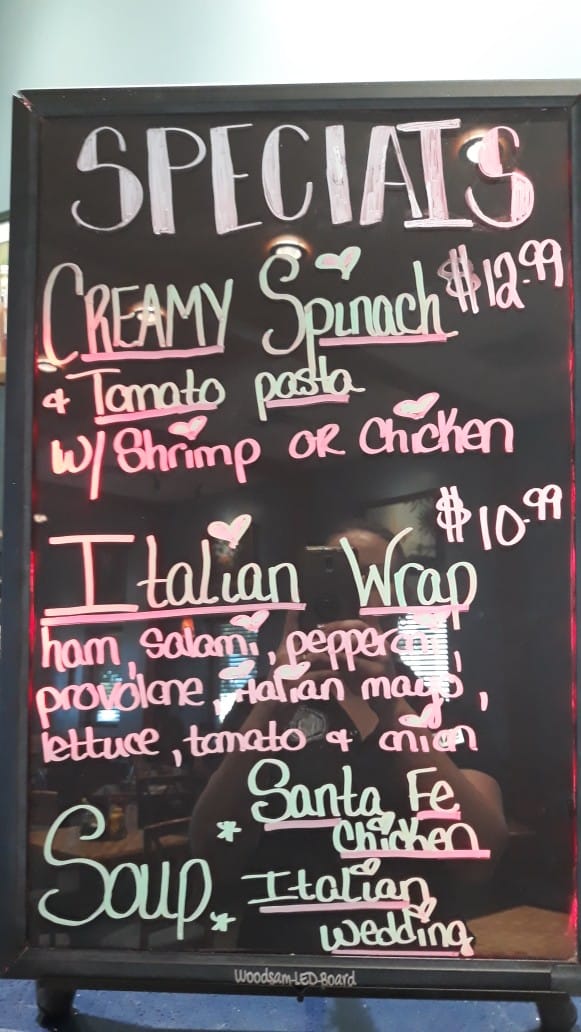 SPECIALS
CREAMY Spinach $12.99
& Tomato pasta
w/ Shrimp OR Chicken
$10.99
Italian Wrap
ham, salami, pepperoni,
provolone, italian mayo,
lettuce, tomato & onion
Soup * Santa Fe
Chicken
* Italian
Wedding
Woodsam-LED-Board